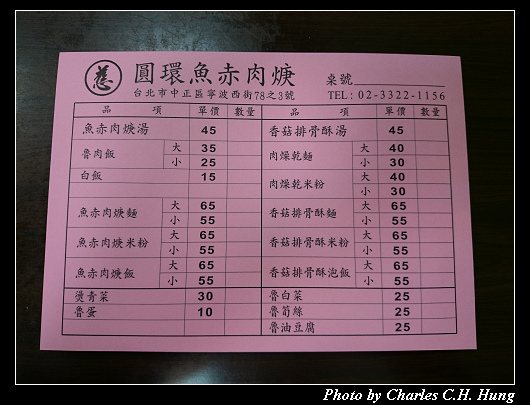 圓環魚赤肉焿
桌號
台北市中正區寧波西街78之3號
TEL: 02-3322-1156
品項 單價 數量 品項 單價 數量
魚赤肉焿湯 45 香菇排骨酥湯 45
魯肉飯 大 35 肉燥乾麵 大 40
小 25 小 30
白飯 15 肉燥乾米粉 大 40
小 30
魚赤肉焿麵 大 65 香菇排骨酥麵 大 65
小 55 小 55
魚赤肉焿米粉 大 65 香菇排骨酥米粉 大 65
小 55 小 55
魚赤肉焿飯 大 65 香菇排骨酥泡飯 大 65
小 55 小 55
燙青菜 30 魯白菜 25
魯蛋 10 魯筍絲 25
魯油豆腐 25
Photo by Charles C.H. Hung